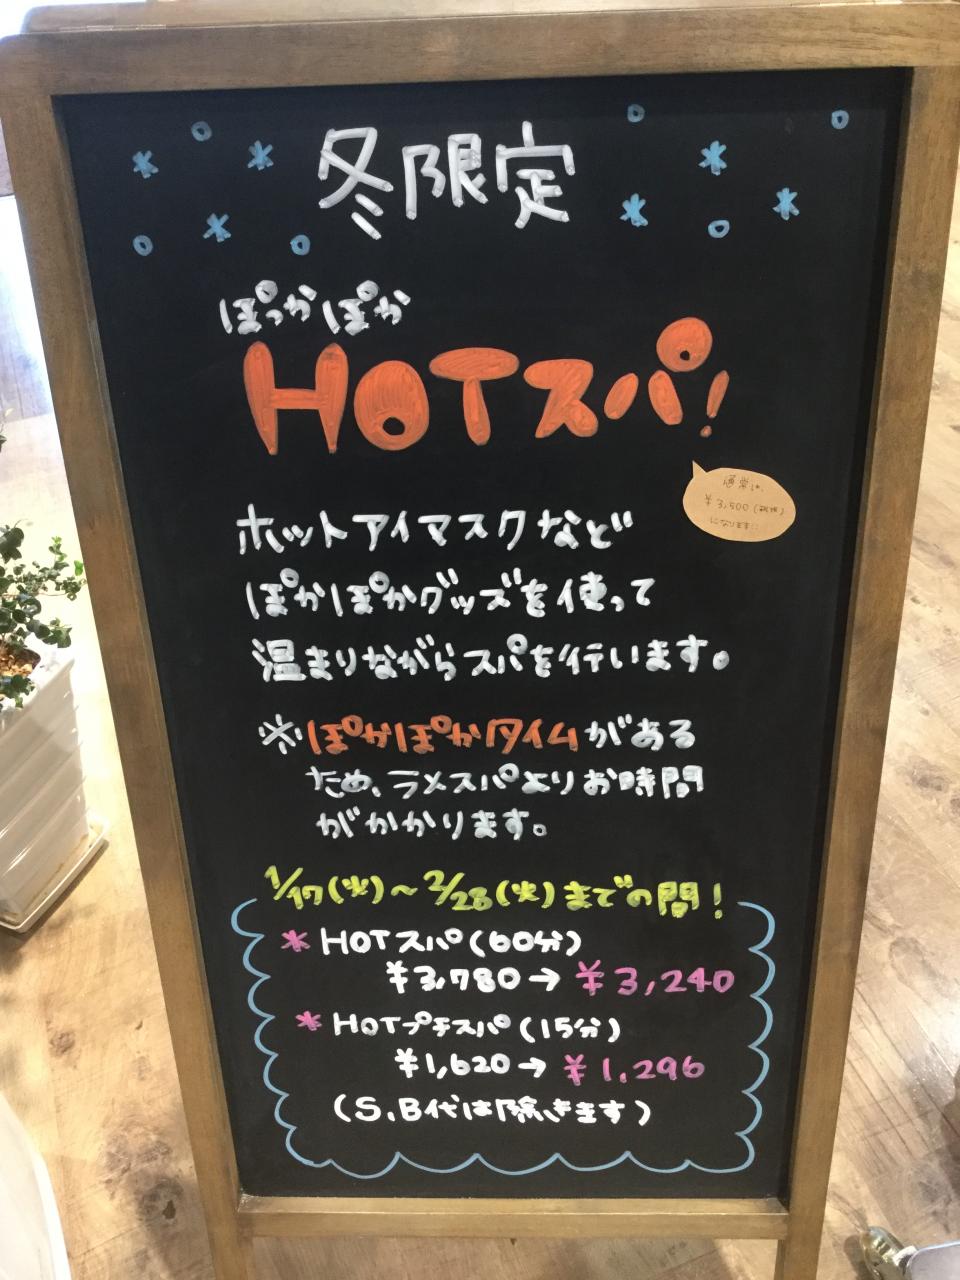 冬限定
ぽっかぽか
HOTスパ!
通常は、
¥3,500(税抜)
になります!!
ホットアイマスクなど
ぽかぽかグッズを使って
温まりながらスパを行います。
※ぽかぽかタイムがある
ため、ラメスパよりお時間
がかかります。
1/17(火)~2/28(火)までの間!
* HOTスパ(60分)
¥3,780→¥3,240
* HOTプチスパ(15分)
¥1,620→¥1,296
(S.B代は除きます)